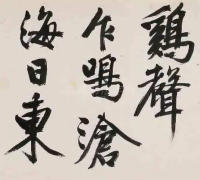 鷄聲
乍鳴滄
海日東